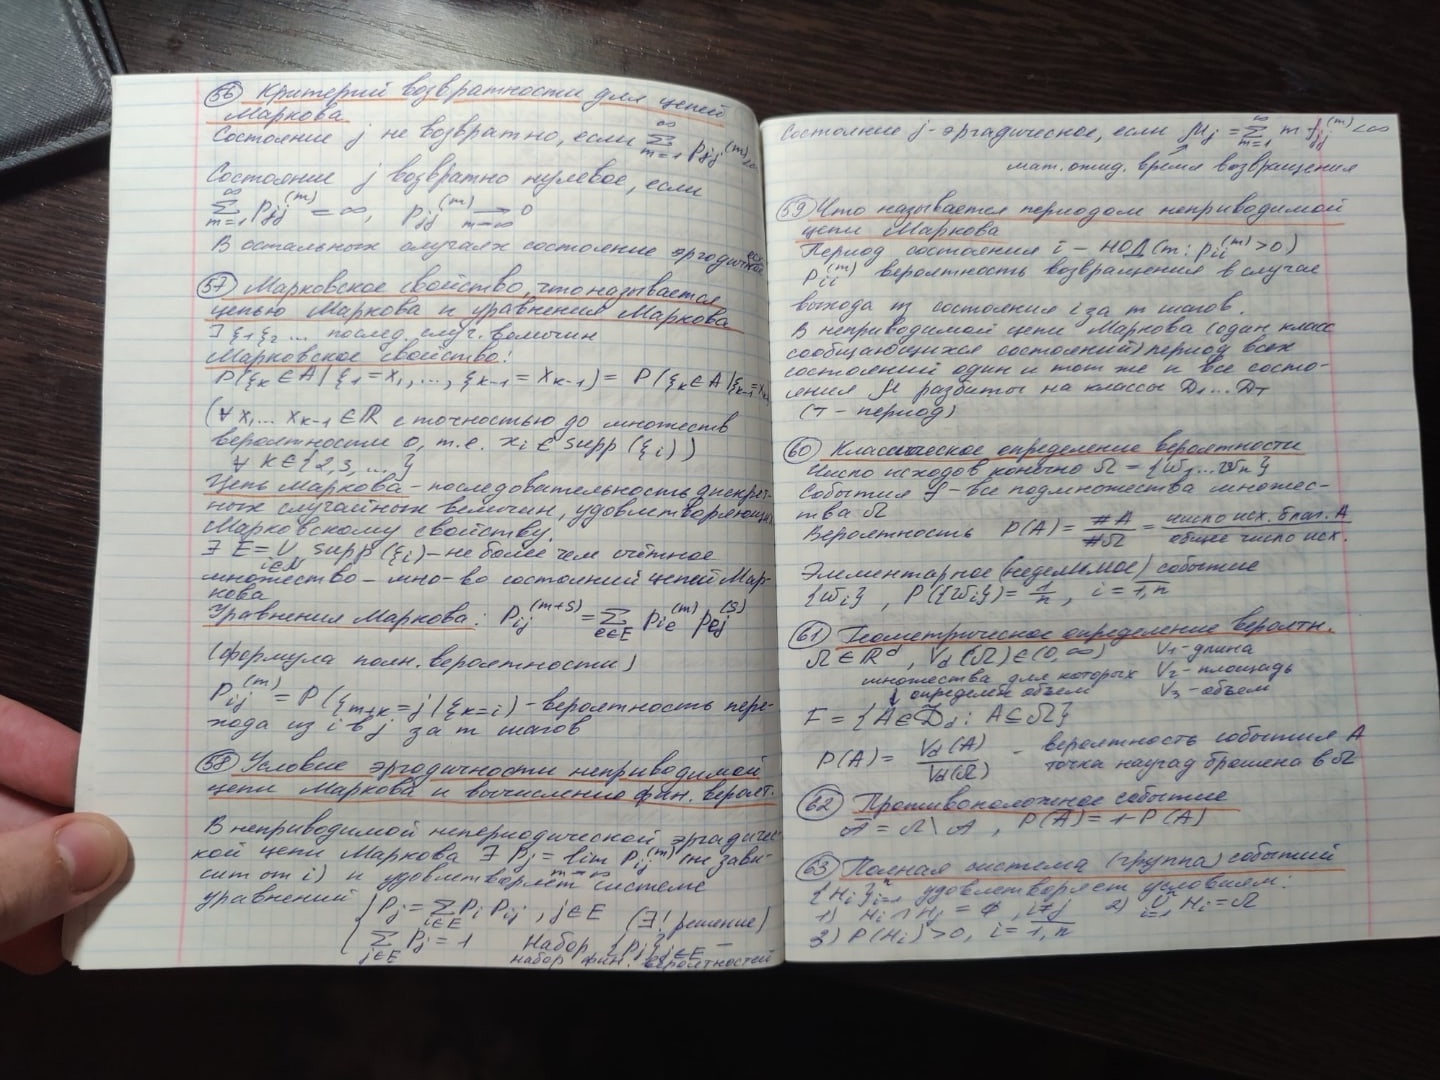 56 Критерий возвратности для цепей
Маркова
Состояние j не возвратно, если ∑_{m=1}^∞ p_jj^(m) < ∞
Состояние j возвратно нулевое, если
∑_{m=1}^∞ p_jj^(m) = ∞, p_jj^(m) →_{m→∞} 0
В остальных случаях состояние эргодическое
57 Марковское свойство, что называется
цепью Маркова и уравнения Маркова
∃ ξ₁ ξ₂ ... послед. случ. величин
Марковское свойство:
P(ξ_k ∈ A | ξ₁ = x₁, ..., ξ_{k-1} = x_{k-1}) = P(ξ_k ∈ A | ξ_{k-1} = x_{k-1})
(∀ x₁... x_{k-1} ∈ ℝ с точностью до множеств
вероятности 0, т.е. x_i ∈ supp (ξ_i))
∀ k ∈ {2,3, ...}
Цепь Маркова - последовательность дискрет-
ных случайных величин, удовлетворяющих
Марковскому свойству.
∃ E = ∪_{i∈N} supp (ξ_i) - не более чем счётное
множество - мно-во состояний цепей Мар-
кова
Уравнения Маркова: P_ij^(m+s) = ∑_{e∈E} p_ie^(m) p_ej^(s)
(формула полн. вероятности)
P_ij^(m) = P(ξ_{m+k} = j | ξ_k = i) - вероятность пере-
хода из i в j за m шагов
58 Условие эргодичности неприводимой
цепи Маркова и вычисление фин. вероят.
В неприводимой непериодической эргодичес-
кой цепи Маркова ∃ P_j = lim_{m→∞} P_ij^(m) (не зави-
сит от i) и удовлетворяет системе
уравнений { P_j = ∑_{i∈E} P_i P_ij , j∈E (∃! решение)
∑_{j∈E} P_j = 1 Набор {P_j}_{j∈E} -
набор фин. вероятностей
Состояние j - эргадическое, если μ_j = ∑_{m=1}^∞ m f_jj^(m) < ∞
мат. ожид. время возвращения
59 Что называется периодом неприводимой
цепи Маркова
Период состояния i - НОД (m : p_ii^(m) > 0)
P_ii^(m) вероятность возвращения в случае
выхода из состояния i за m шагов.
В неприводимой цепи Маркова (один класс
сообщающихся состояний) период всех
состояний один и тот же и все состо-
яния М разбиты на классы D₁...D_T
(T - период)
60 Классическое определение вероятности
Число исходов конечно Ω = {ω₁...ω_n}
События F - все подмножества множес-
тва Ω
Вероятность P(A) = #A / #Ω = число исх. благ. A / общее число исх.
Элементарное (неделимое) событие
{ω_i} , P({ω_i}) = 1/n , i = 1,n
61 Геометрическое определение вероятн.
Ω ∈ ℝ^d , V_d (Ω) ∈ (0, ∞) V₁ - длина
множества для которых V₂ - площадь
↓ определён объём V₃ - объём
F = {A ∈ D_d : A ⊆ Ω}
P(A) = V_d (A) / V_d (Ω) - вероятность события A
точка наугад брошена в Ω
62 Противоположное событие
A̅ = Ω \ A , P(A̅) = 1 - P(A)
63 Полная система (группа) событий
{H_i}_{i=1}^n удовлетворяет условиям:
1) H_i ∩ H_j = ∅ , i≠j 2) ∪_{i=1}^n H_i = Ω
3) P(H_i) > 0, i = 1,n